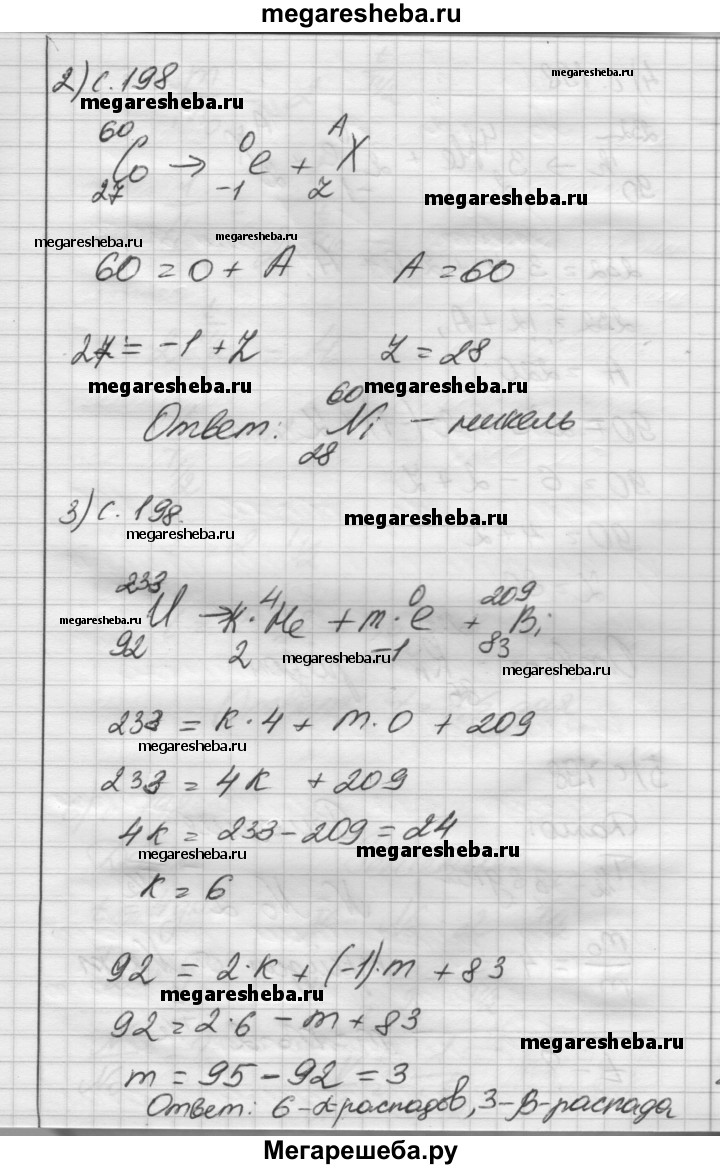 megaresheba.ru
2) с. 198
megaresheba.ru
60 0 A
Co → e + X
27 -1 Z
megaresheba.ru
megaresheba.ru megaresheba.ru
60 = 0 + A A = 60
27 = -1 + Z Z = 28
megaresheba.ru megaresheba.ru
60
Ответ: Ni - никель
28
3) с. 198.
megaresheba.ru
megaresheba.ru
233 4 0 209
U → K · He + m · e + Bi
92 2 -1 83
megaresheba.ru
megaresheba.ru
megaresheba.ru
233 = K · 4 + m · 0 + 209
megaresheba.ru
233 = 4K + 209
4K = 233 - 209 = 24
megaresheba.ru megaresheba.ru
K = 6
92 = 2 · K + (-1) · m + 83
megaresheba.ru
92 = 2 · 6 - m + 83
megaresheba.ru
m = 95 - 92 = 3
Ответ: 6-α-распадов, 3-β-распада
Мегарешеба.ру